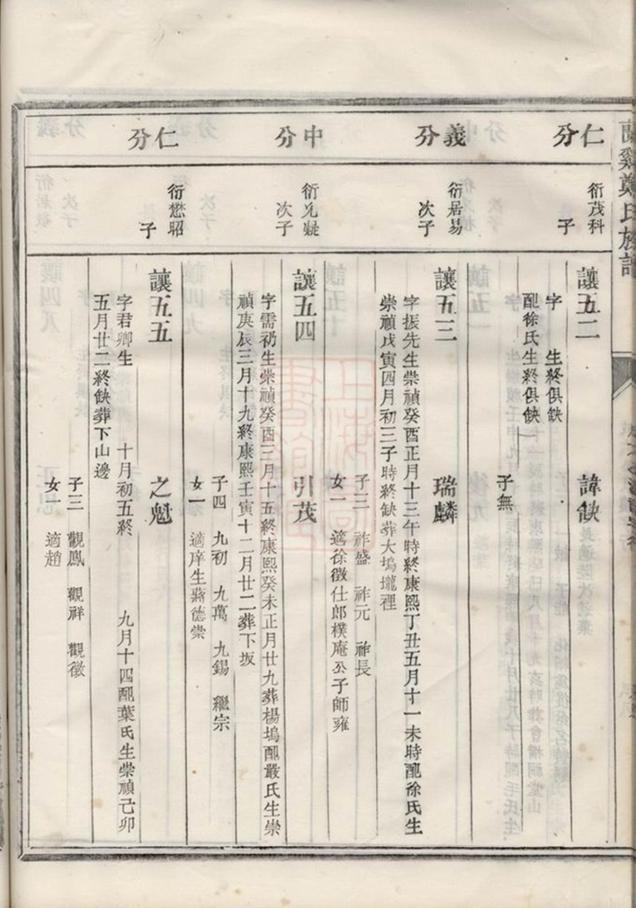 蘭谿鄭氏族譜
仁分
衍茂科
子
讓五二
諱缺
字 生終俱缺
配徐氏生終俱缺
子無
義分
衍居易
次子
讓五三
瑞麟
字振先生崇禎癸酉正月十三午時終康熙丁丑五月十一未時配徐氏生
崇禎戊寅四月初三子時終缺葬大塢壠裡
子三 祚盛 祚元 祚長
女二 適徐徵仕郎樸庵公子師雍
中分
衍允凝
次子
讓五四
引茂
字需礽生崇禎癸酉三月十五終康熙癸未正月廿九葬楊塢配嚴氏生崇
禎庚辰三月十九終康熙壬寅十二月廿二葬下坂
子四 九初 九萬 九錫 繼宗
女一 適庠生蔣德崇
仁分
衍懋昭
子
讓五五
之魁
字君卿生 十月初五終 九月十四配葉氏生崇禎己卯
五月廿二終缺葬下山邊
子三 觀鳳 觀祥 觀徵
女一 適趙